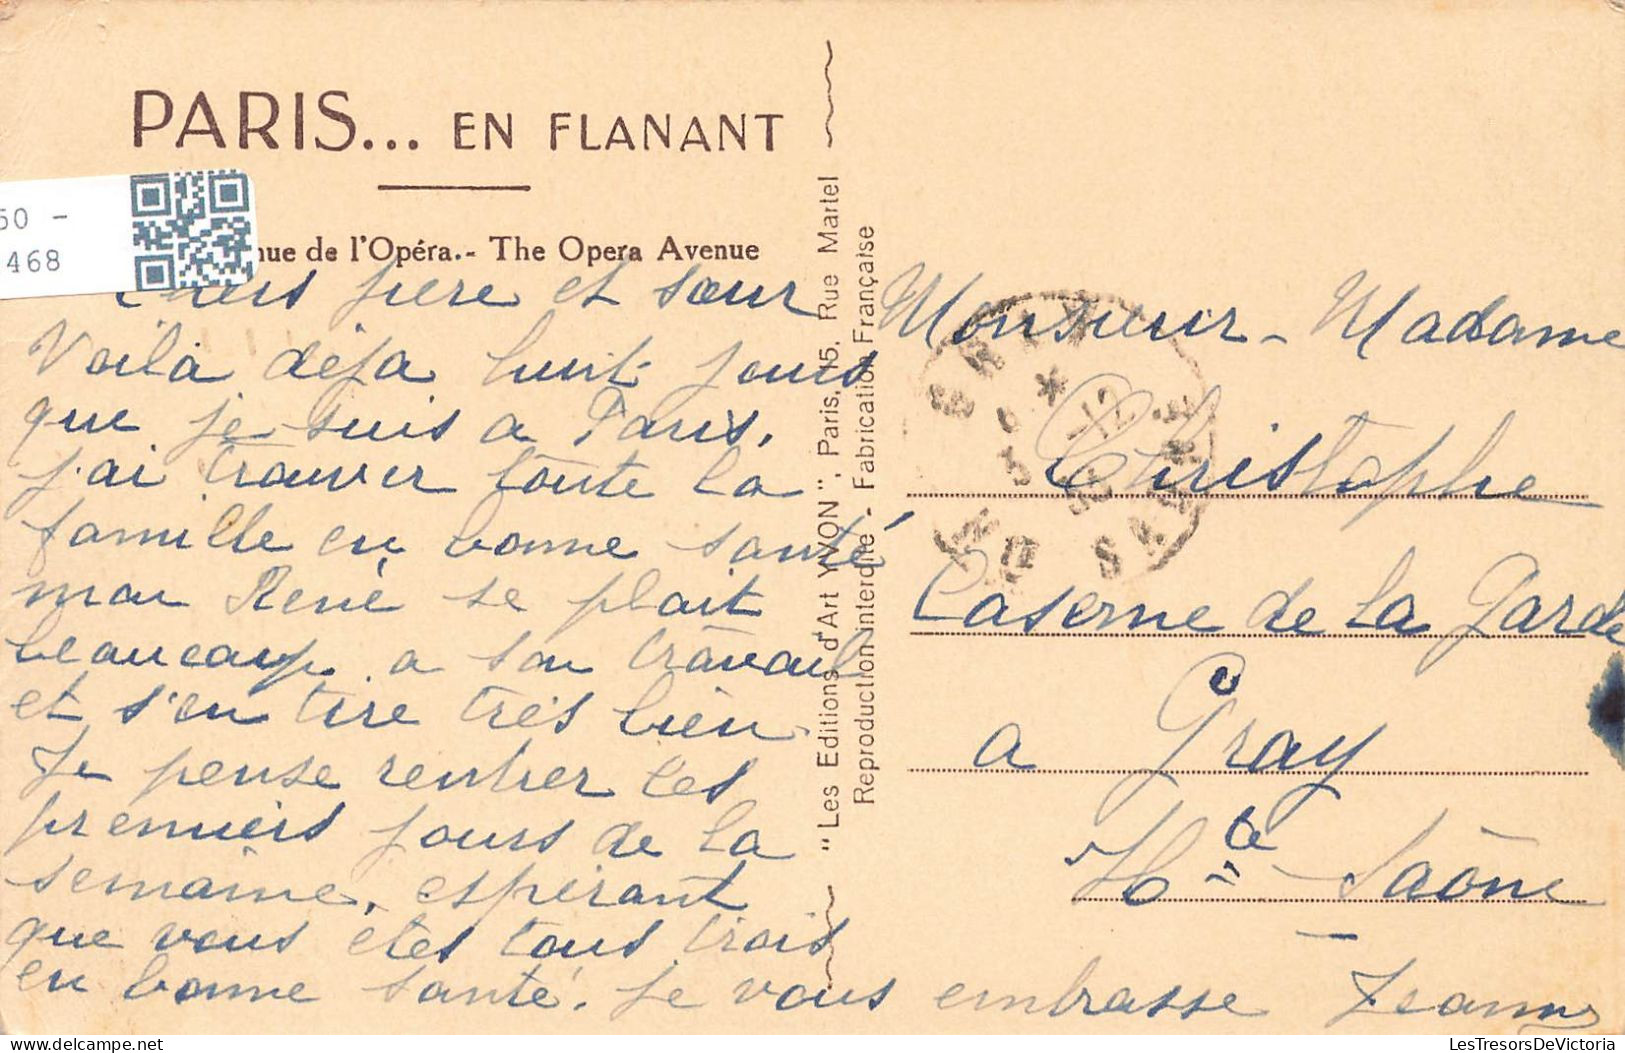 PARIS... EN FLANANT
60 -
468
nue de l'Opéra.- The Opera Avenue
Chers frere et sœur
Voilà déja huit jours
que je suis a Paris.
j'ai trouver toute la
famille en bonne santé
mon René se plait
beaucoup a son travail
et s'en tire très bien.
Je pense rentrer les
premiers jours de la
semaine, espérant
que vous etes tous trois
en bonne santé. Je vous embrasse Jeanne
"Les Editions d'Art YVON", Paris, 15, Rue Martel
Reproduction interdite - Fabrication Française
Monsieur - Madame
Christophe
Caserne de la Garde
a Gray
Hte Saône
LesTresorsDeVictoria
delcampe.net